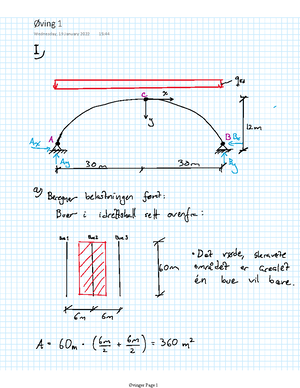 Øving 1
Wednesday, 13 January 2021 15:44
I,
q Ed
C x
y
A B Bx
Ax
12m
Ay By
30m 30m
a) Beregner belastningen først:
Buer i idrettshall sett ovenfra:
Bue 1 Bue 2 Bue 3
60m
6m 6m
• Det røde, skraverte
området er arealet
én bue vil bære.
A = 60m · (6m/2 + 6m/2) = 360 m²
Øvinger Page 1